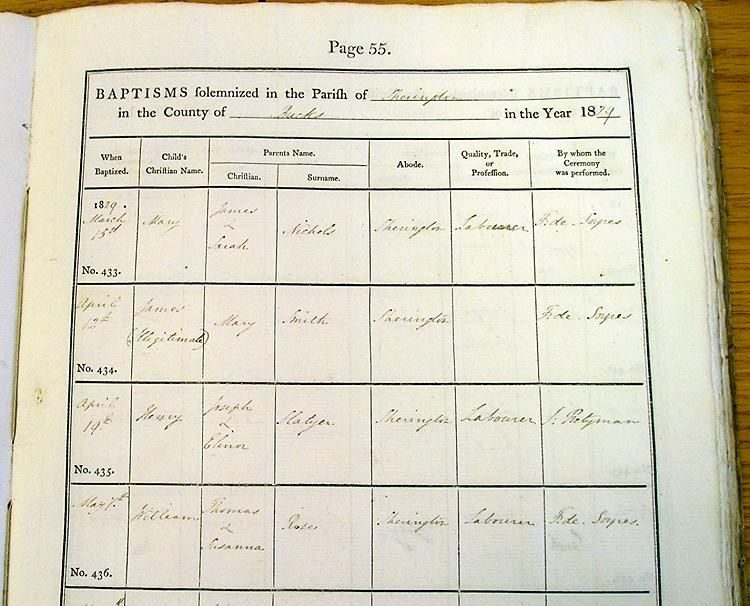 Page 55.
BAPTISMS solemnized in the Parish of Sherington
in the County of Bucks in the Year 1829
When Baptized.
Child's Christian Name.
Parents Name.
Christian.
Surname.
Abode.
Quality, Trade, or Profession.
By whom the Ceremony was performed.
1829.
March
15th
No. 433.
Mary
James
&
Sarah
Nichols
Sherington
Labourer
F: de Soyres
April
12th
No. 434.
James
(Illegitimate)
Mary
Smith
Sherington
F: de Soyres
April
19th
No. 435.
Henry
Joseph
&
Elinor
Slatyer
Sherington
Labourer
J: Pretyman
May 7th
No. 436.
William
Thomas
&
Susanna
Rose
Sherington
Labourer
F: de Soyres